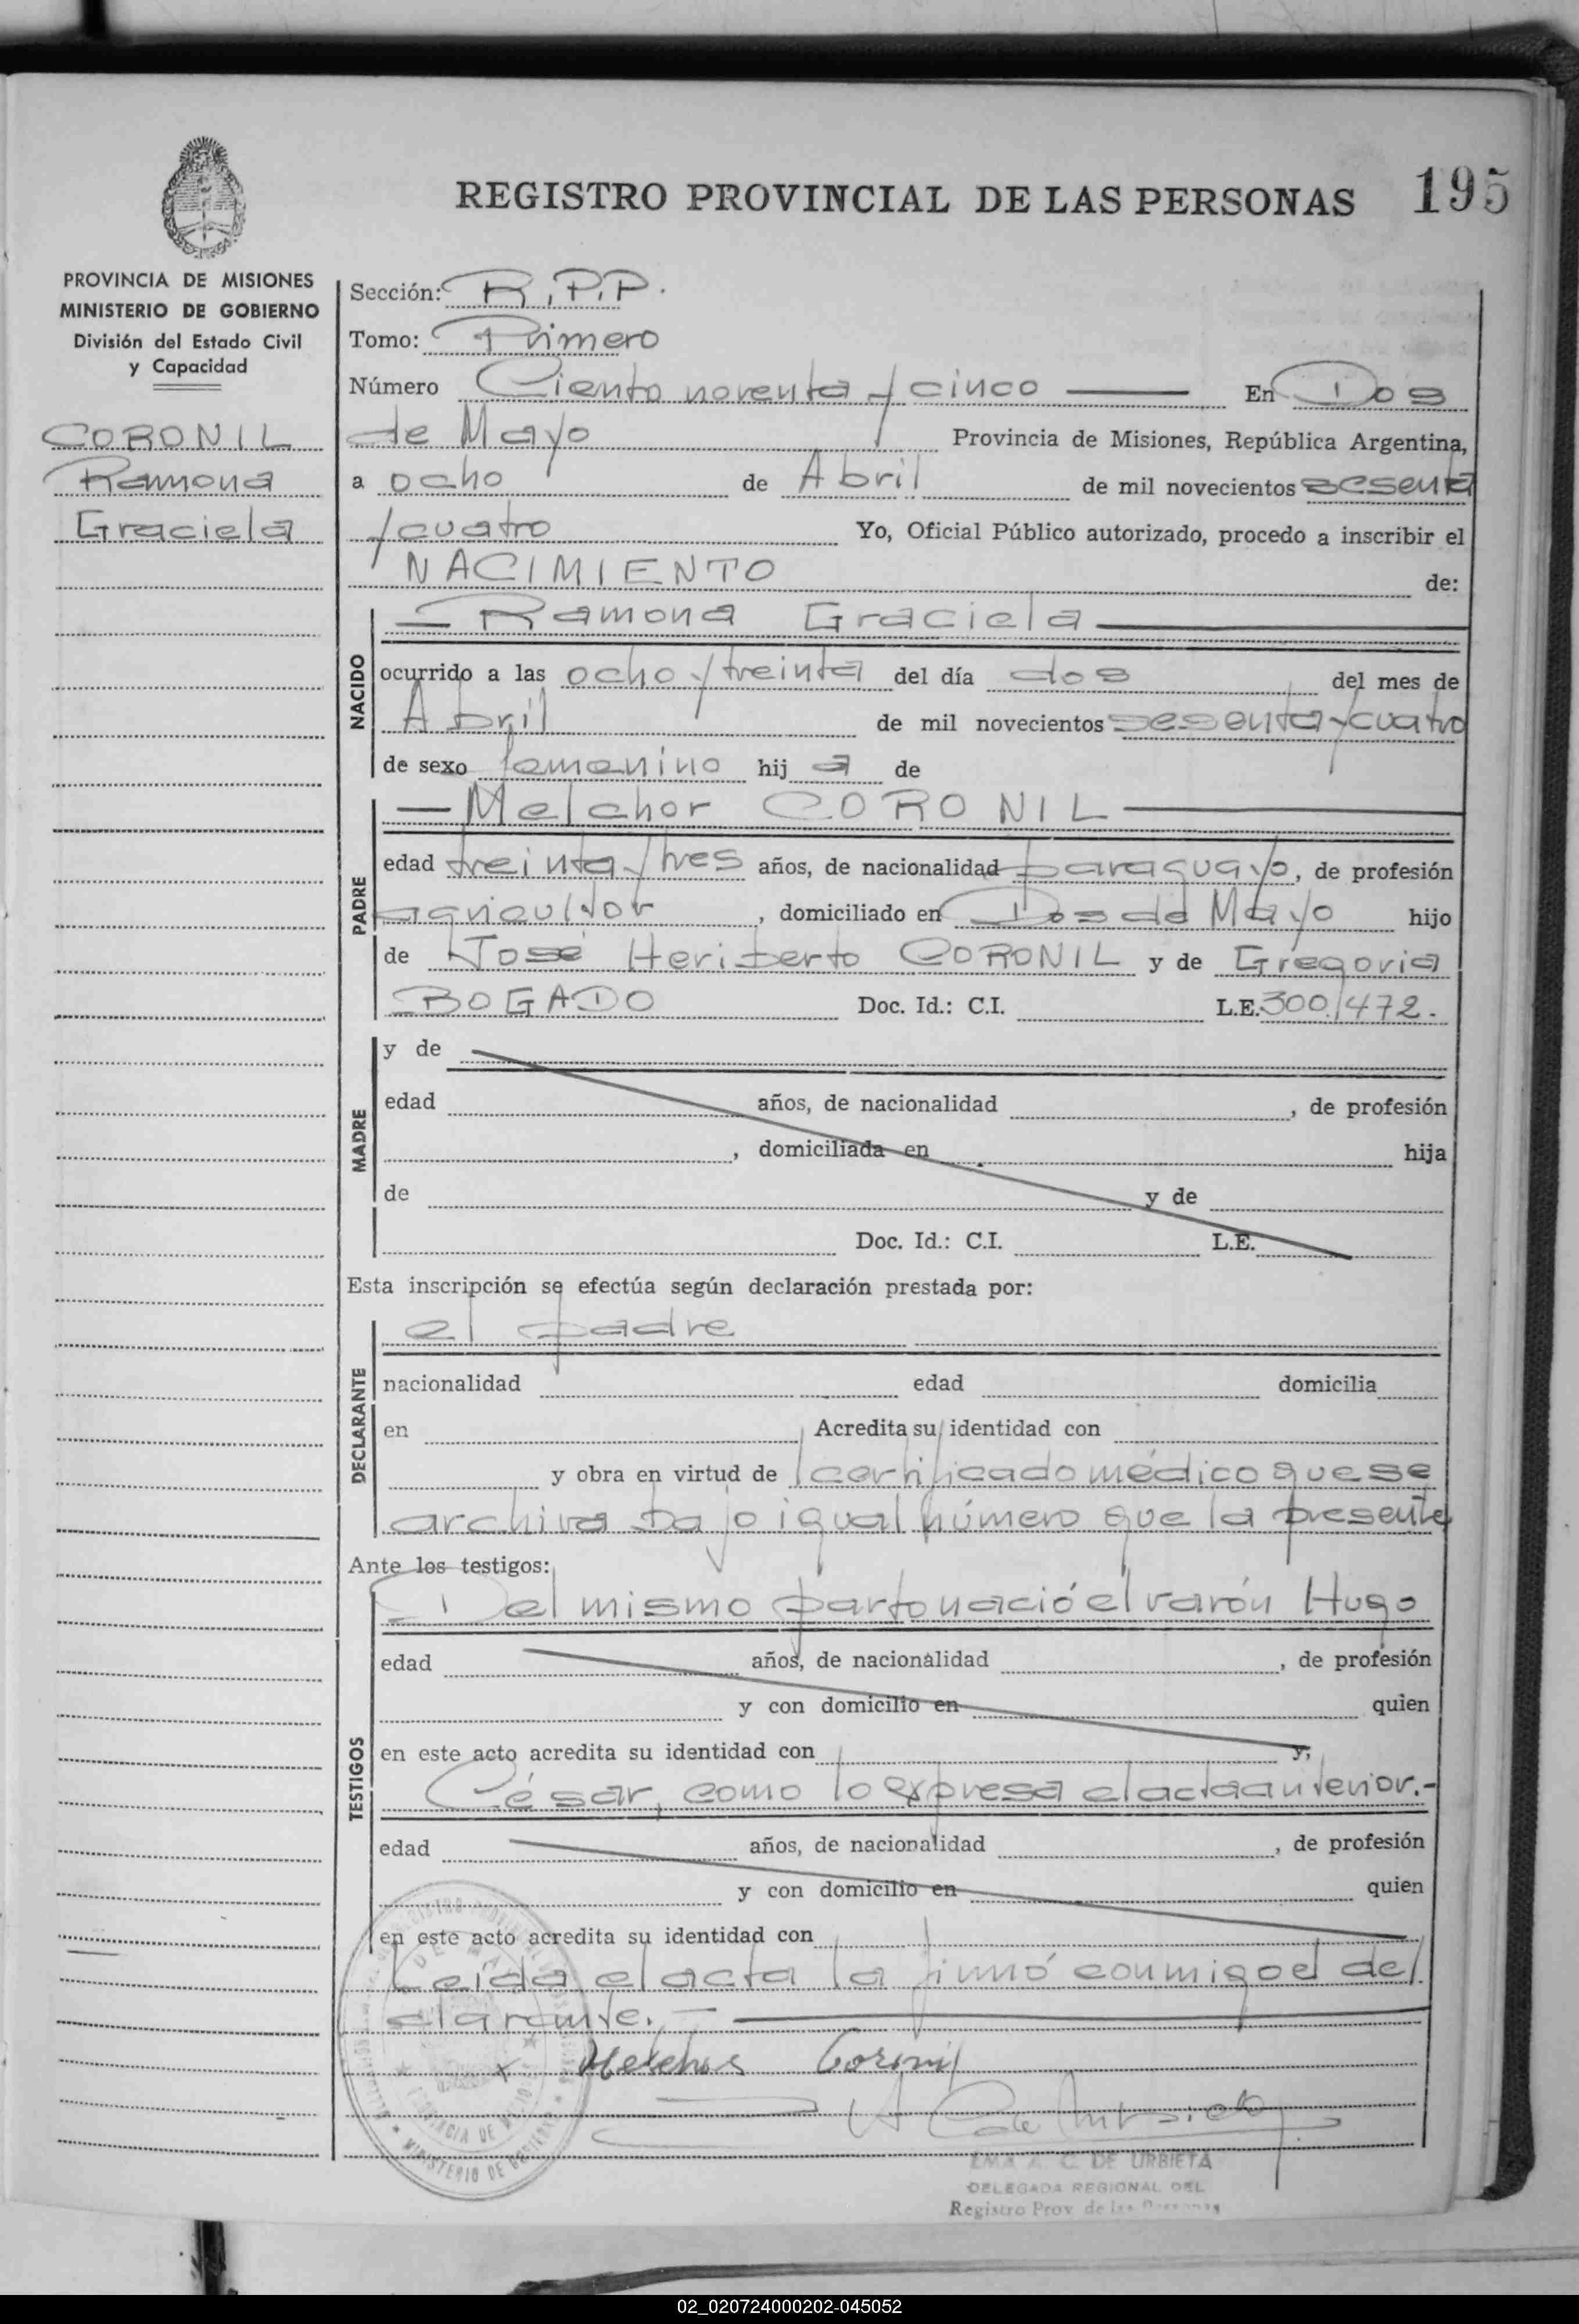 REGISTRO PROVINCIAL DE LAS PERSONAS 195
PROVINCIA DE MISIONES
MINISTERIO DE GOBIERNO
División del Estado Civil
y Capacidad
CORONIL
Ramona
Graciela
Sección: R.P.P.
Tomo: Primero
Número Ciento noventa y cinco En Dos
de Mayo Provincia de Misiones, República Argentina,
a ocho de Abril de mil novecientos sesenta
y cuatro Yo, Oficial Público autorizado, procedo a inscribir el
NACIMIENTO de:
NACIDO
Ramona Graciela
ocurrido a las ocho y treinta del día dos del mes de
Abril de mil novecientos sesenta y cuatro
de sexo femenino hij a de
PADRE
Melchor CORONIL
edad treinta y tres años, de nacionalidad paraguayo, de profesión
agricultor, domiciliado en Dos de Mayo hijo
de José Heriberto CORONIL y de Gregoria
BOGADO Doc. Id.: C.I. L.E. 300.472.
MADRE
y de
edad años, de nacionalidad , de profesión
, domiciliada en hija
de y de
Doc. Id.: C.I. L.E.
Esta inscripción se efectúa según declaración prestada por:
DECLARANTE
el padre
nacionalidad edad domicilia
en Acredita su identidad con
y obra en virtud de certificado médico que se
archiva bajo igual número que la presente
Ante los testigos:
TESTIGOS
Del mismo parto nació el varón Hugo
edad años, de nacionalidad , de profesión
y con domicilio en quien
en este acto acredita su identidad con y,
César, como lo expresa el acta anterior.-
edad años, de nacionalidad , de profesión
y con domicilio en quien
en este acto acredita su identidad con
Leída el acta la firmó conmigo el de
clarante.-
x Melchor Coronil
A. C. DE URBIETA
DELEGADA REGIONAL DEL
Registro Prov. de las Personas
MINISTERIO DE GOBIERNO
02_020724000202-045052